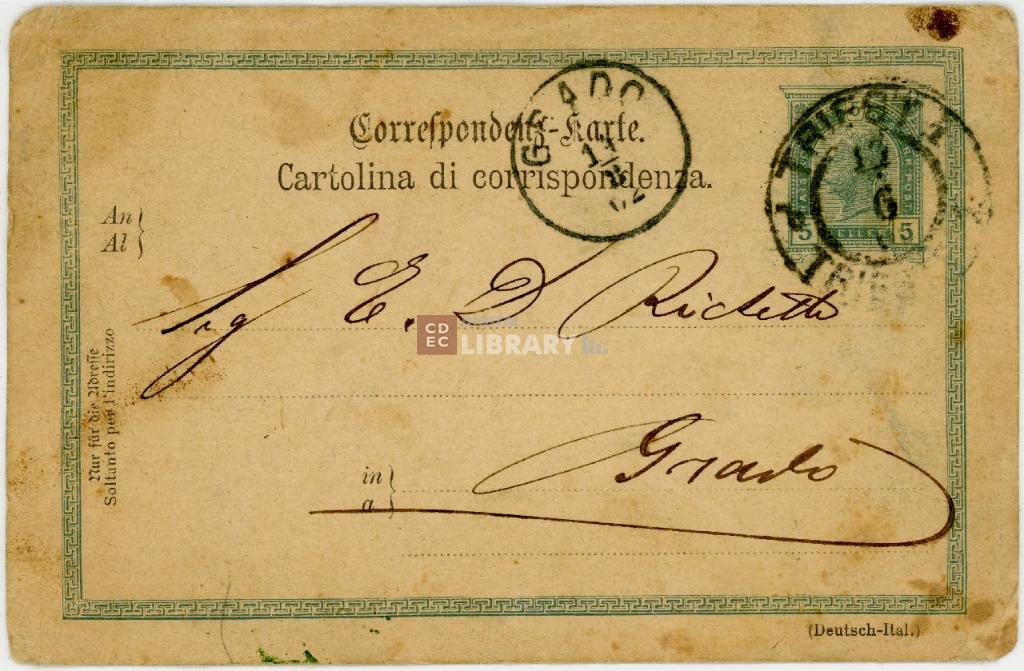 Correspondenz-Karte.
Cartolina di corrispondenza.
GRADO
13
8
02
TRIEST 1
12
6
TRIEST
5 HELLER 5
An
Al
Sig E. D Richetti
CD
EC LIBRARY
Nur für die Adresse
Soltanto per l'indirizzo
in
a
Grado
(Deutsch-Ital.)